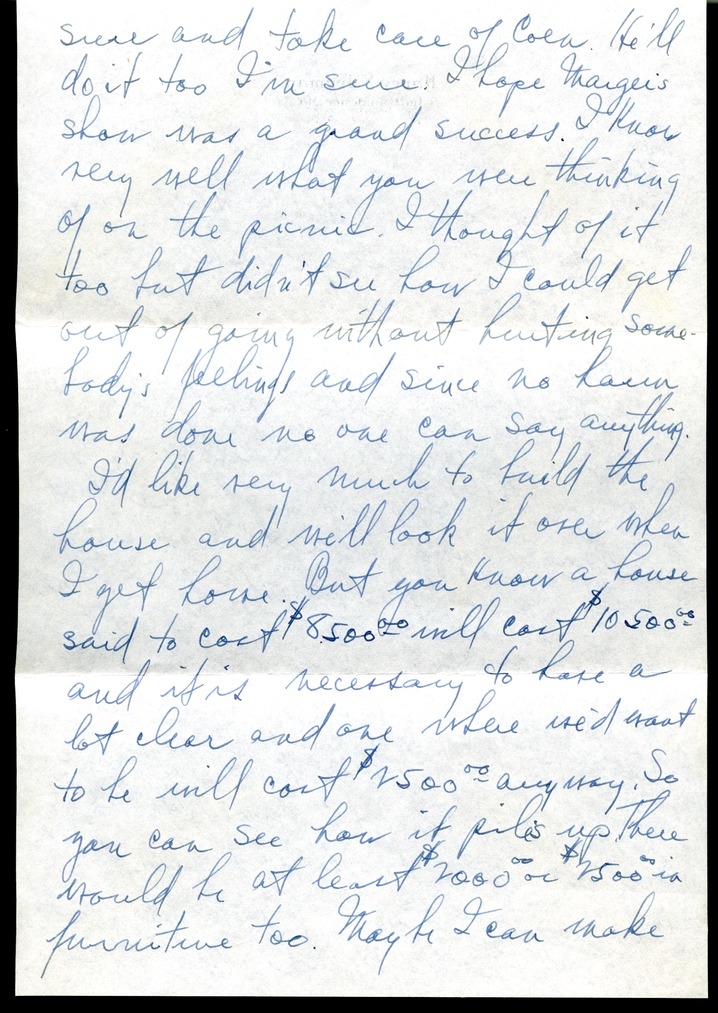 sure and take care of Coen. He'll
do it too I'm sure. I hope Marger's
show was a grand success. I know
very well what you were thinking
of on the picnic. I thought of it
too but didn't see how I could get
out of going without hurting some-
body's feelings and since no harm
was done no one can say anything.
I'd like very much to build the
house and we'll look it over when
I get home. But you know a house
said to cost $8500.00 will cost $10500.00
and it is necessary to have a
lot clear and one where we'd want
to be will cost $2500.00 anyway. So
you can see how it piles up. There
would be at least $2000.00 or $2500.00 in
furnitive too. Maybe I can make